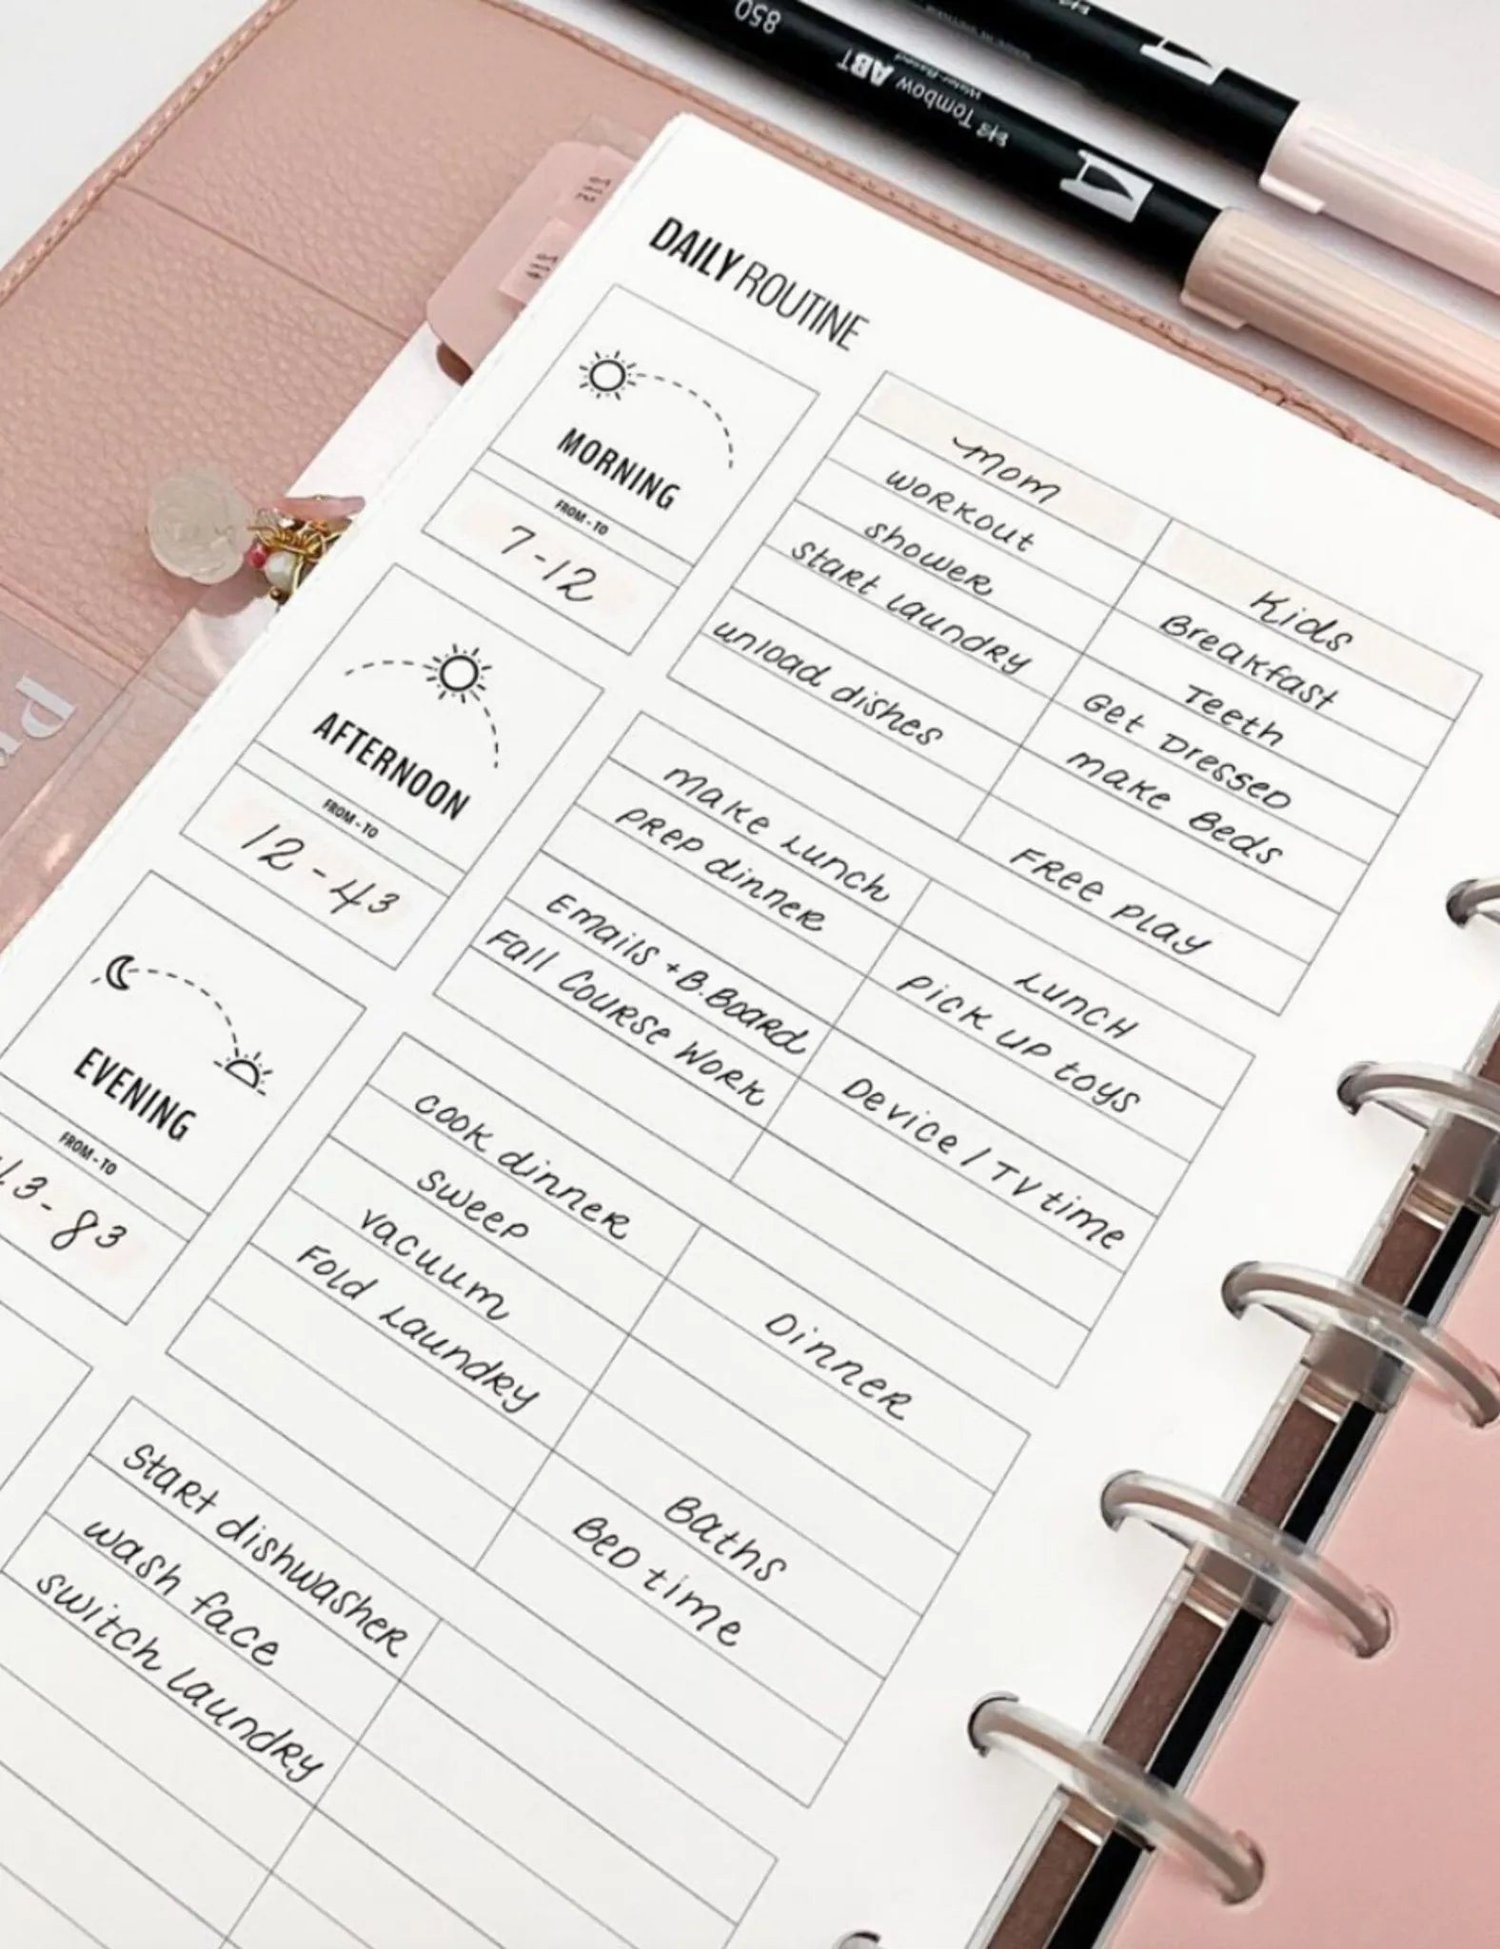 850
Tombow ABT
Water-Based
DAILY ROUTINE
MORNING
FROM - TO
7-12
mom
workout
shower
start laundry
unload dishes
Kids
Breakfast
Teeth
Get Dressed
make Beds
Free play
AFTERNOON
FROM - TO
12-4³
make Lunch
prep dinner
Emails + B.Board
Fall Course Work
Lunch
pick up toys
Device / TV time
EVENING
FROM - TO
43-8³
cook dinner
sweep
vacuum
Fold Laundry
Dinner
Baths
Bed time
start dishwasher
wash face
switch laundry